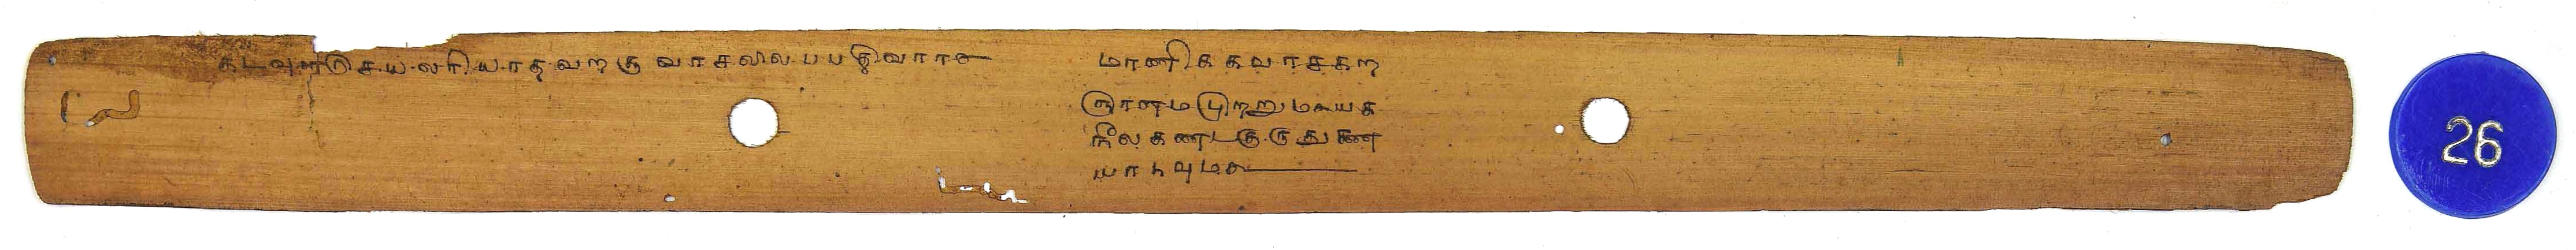 கடவுளடு சயலரியாதவறகு வாசலில பபதுவாரா
மாணிககவாசகற
ஞானமபுறறுமடையக
நீலகணடகுருதுணை
யாகவும
26